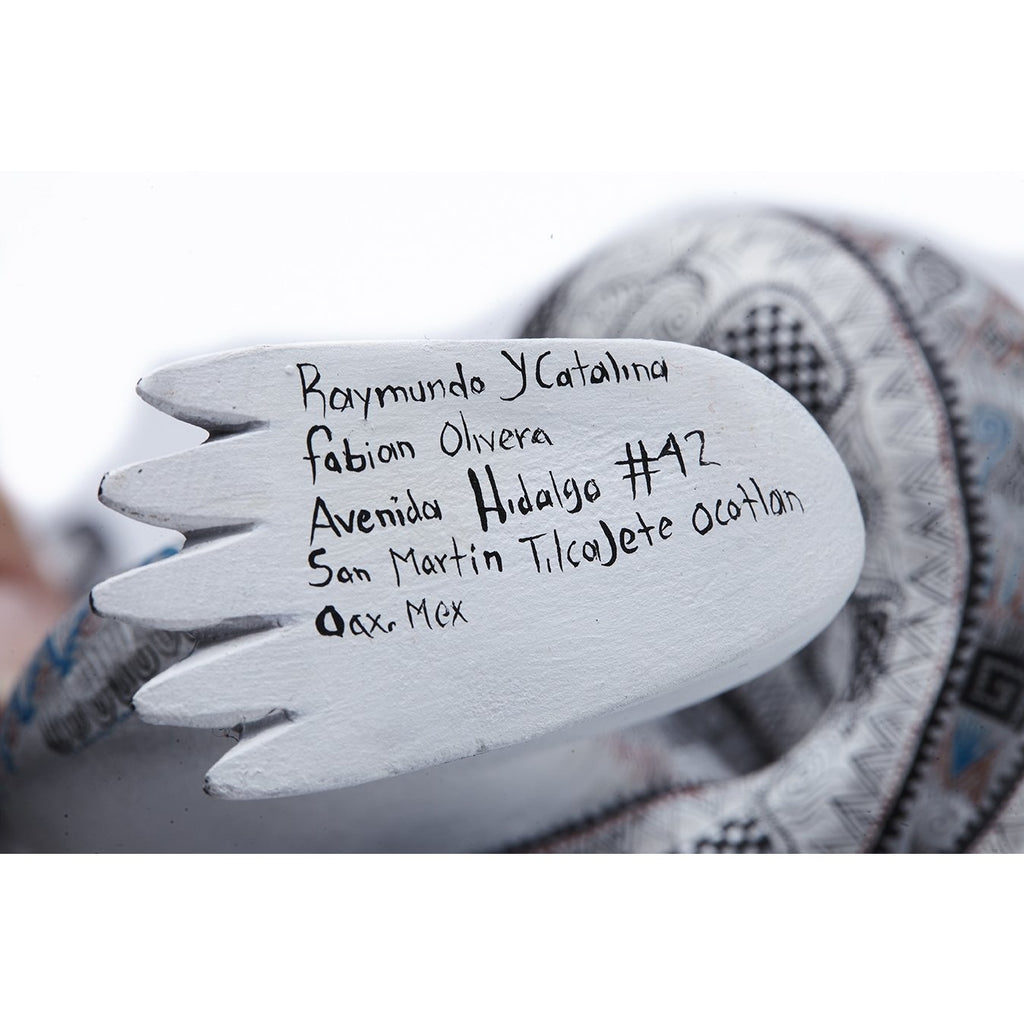 Raymundo Y Catalina
fabian Olivera
Avenida Hidalgo #42
San Martin TilcaJete ocotlan
Oax. Mex